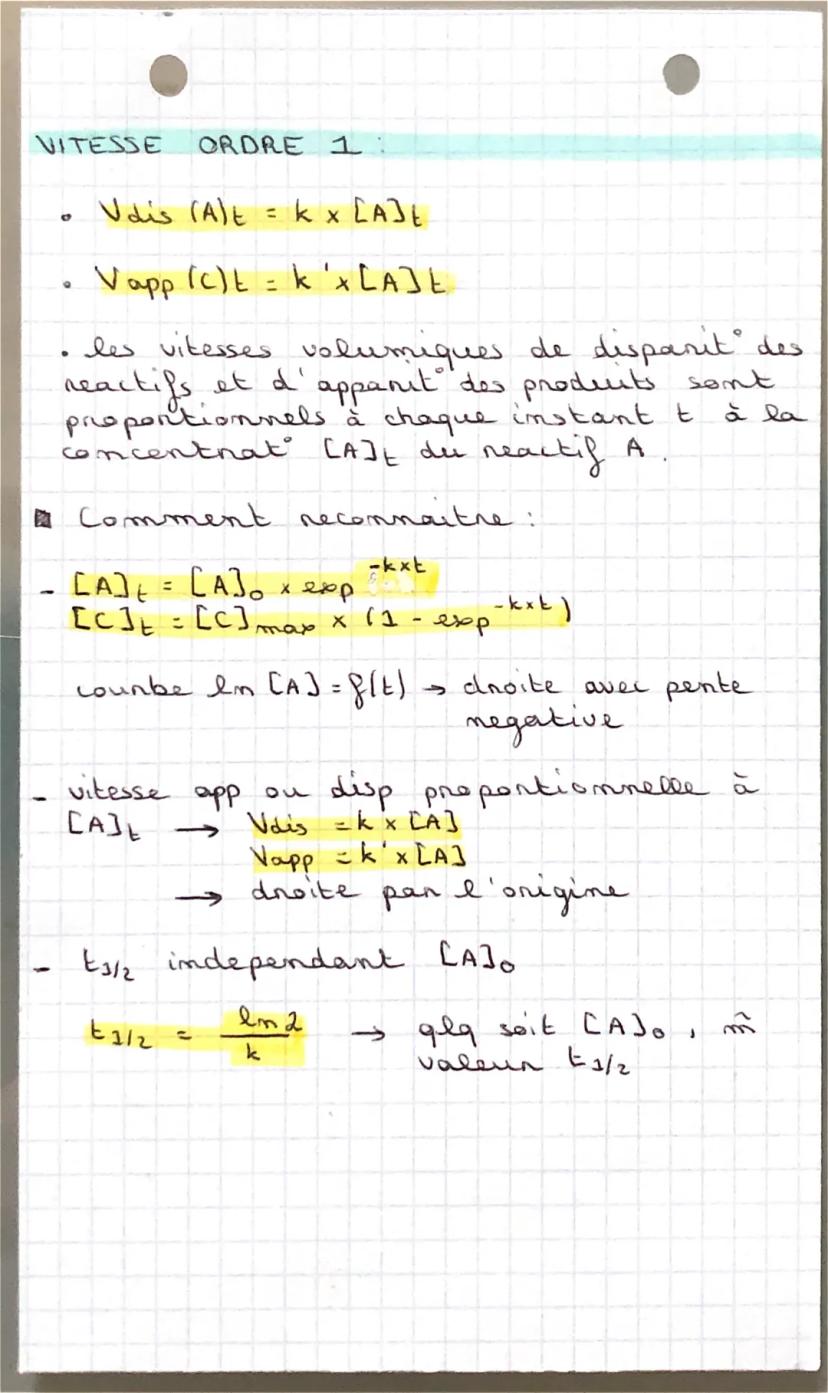 VITESSE ORDRE 1 :
• Vdis (A)t = k x [A]t
• Vapp (C)t = k'x[A]t
• les vitesses volumiques de disparit° des
reactifs et d'apparit° des produits sont
proportionnels à chaque instant t à la
concentrat° [A]t du reactif A.
Comment reconnaitre :
- [A]t = [A]0 x exp -kxt
[C]t = [C]max x (1 - exp -kxt)
courbe ln [A] = f(t) → droite avec pente
negative
- vitesse app ou disp proportionnelle à
[A]t → Vdis = k x [A]
Vapp = k'x[A]
→ droite par l'origine
- t1/2 independant [A]0
t1/2 = ln2/k → qlq soit [A]0, m̂
valeur t1/2